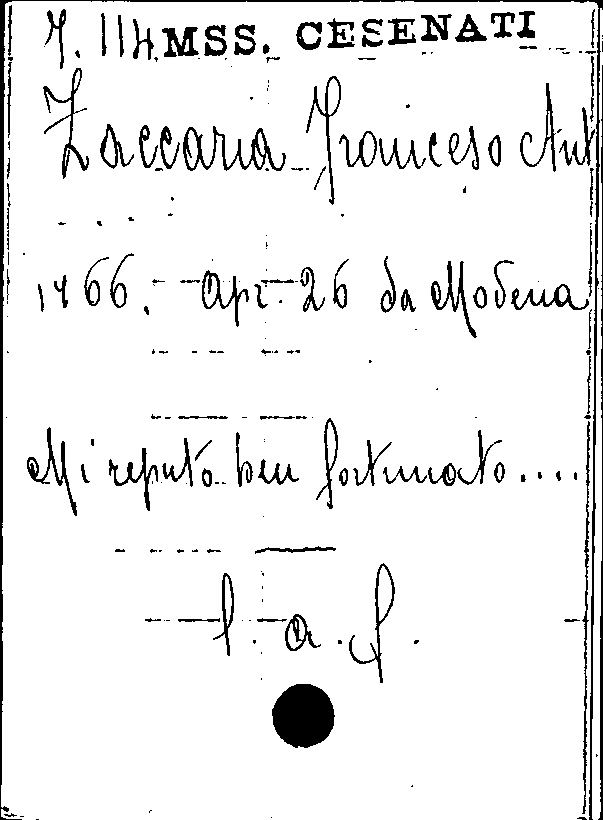 7. 114 MSS. CESENATI
Zaccaria Francesco Ant
1766. Apr. 26 da Modena
Mi reputo ben fortunato....
l. a. f.